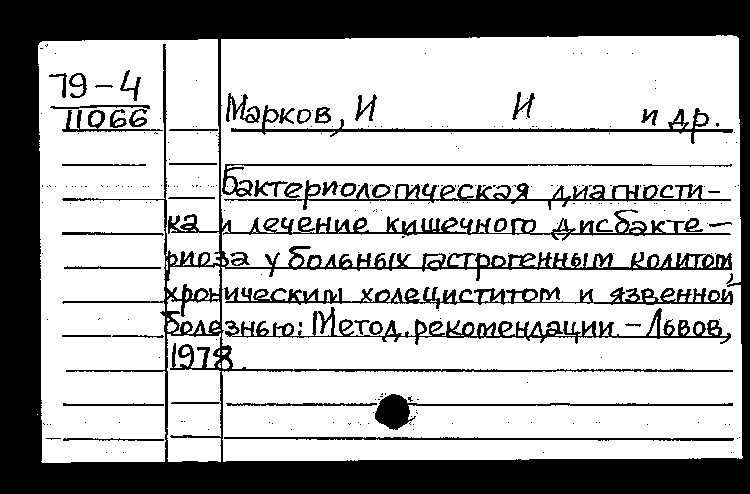 79-4
11066
Марков, И И и др.
Бактериологическая диагности-
ка и лечение кишечного дисбакте-
риоза у больных гастрогенным колитом,
хроническим холециститом и язвенной
болезнью: Метод. рекомендации. - Львов,
1978.